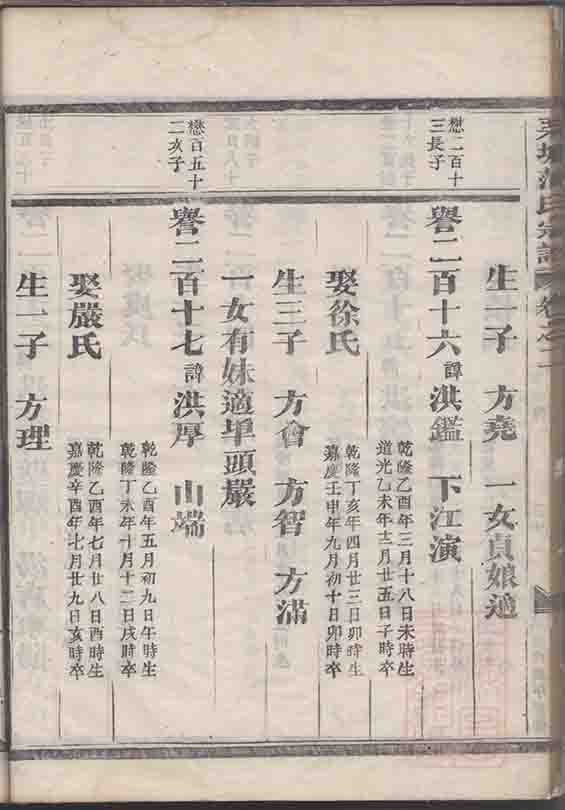 氏宗譜 卷之二
生一子 方堯 一女貞娘適
懋一百十
三長子
譽二百十六諱洪鑑 下江演
乾隆乙酉年三月十八日未時生
道光乙未年十二月廿五日子時卒
娶徐氏
乾隆丁亥年四月廿三日卯時生
嘉慶壬申年九月初十日卯時卒
生三子 方會 方智 方滿
一女有妹適埠頭嚴
懋百五十
二次子
譽二百十七諱洪厚 山端
乾隆乙酉年五月初九日午時生
乾隆丁未年十月十二日戌時卒
娶嚴氏
乾隆乙酉年七月廿八日酉時生
嘉慶辛酉年七月廿九日亥時卒
生一子 方理